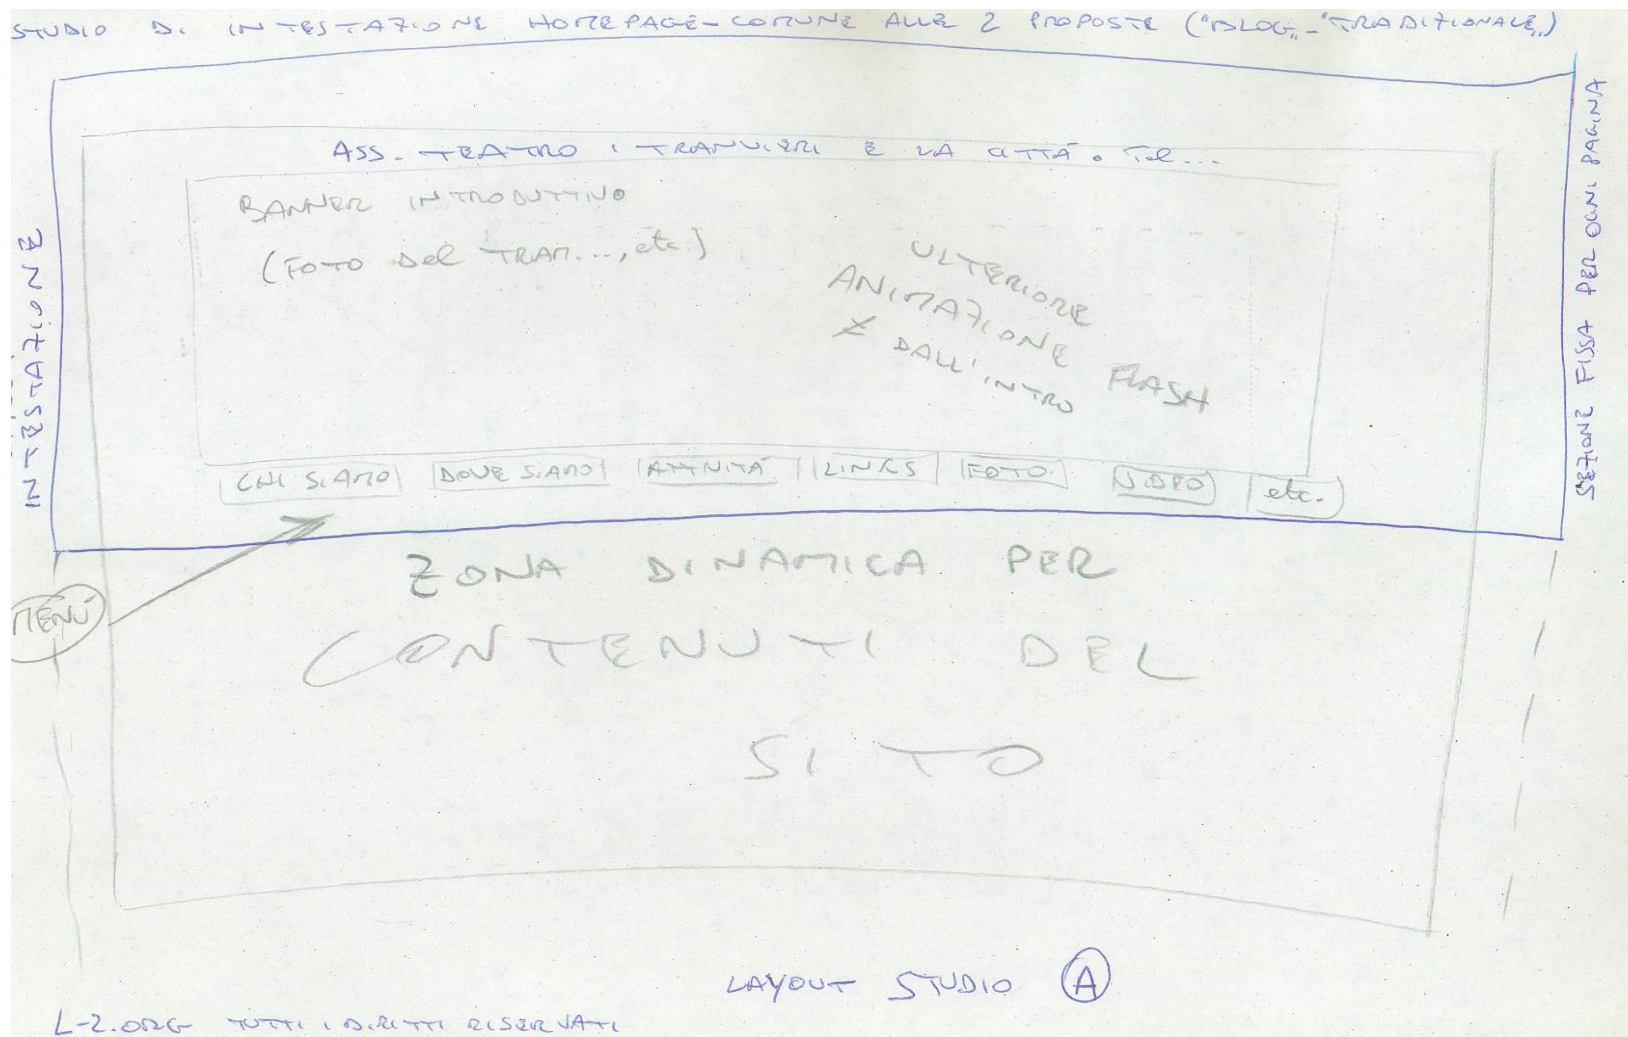 STUDIO DI INTESTAZIONE HOMEPAGE - COMUNE ALLE 2 PROPOSTE ("BLOG" - "TRADIZIONALE")
INTESTAZIONE
SEZIONE FISSA PER OGNI PAGINA
ASS. TEATRO I TRANVIERI E LA CITTÀ. Tel...
BANNER INTRODUTTIVO
(FOTO DEL TRAM..., etc.)
ULTERIORE
ANIMAZIONE FLASH
≠ DALL'INTRO
CHI SIAMO DOVE SIAMO ATTIVITÀ LINKS FOTO VIDEO etc.
MENÙ
ZONA DINAMICA PER
CONTENUTI DEL
SITO
LAYOUT STUDIO A
L-2.ORG TUTTI I DIRITTI RISERVATI